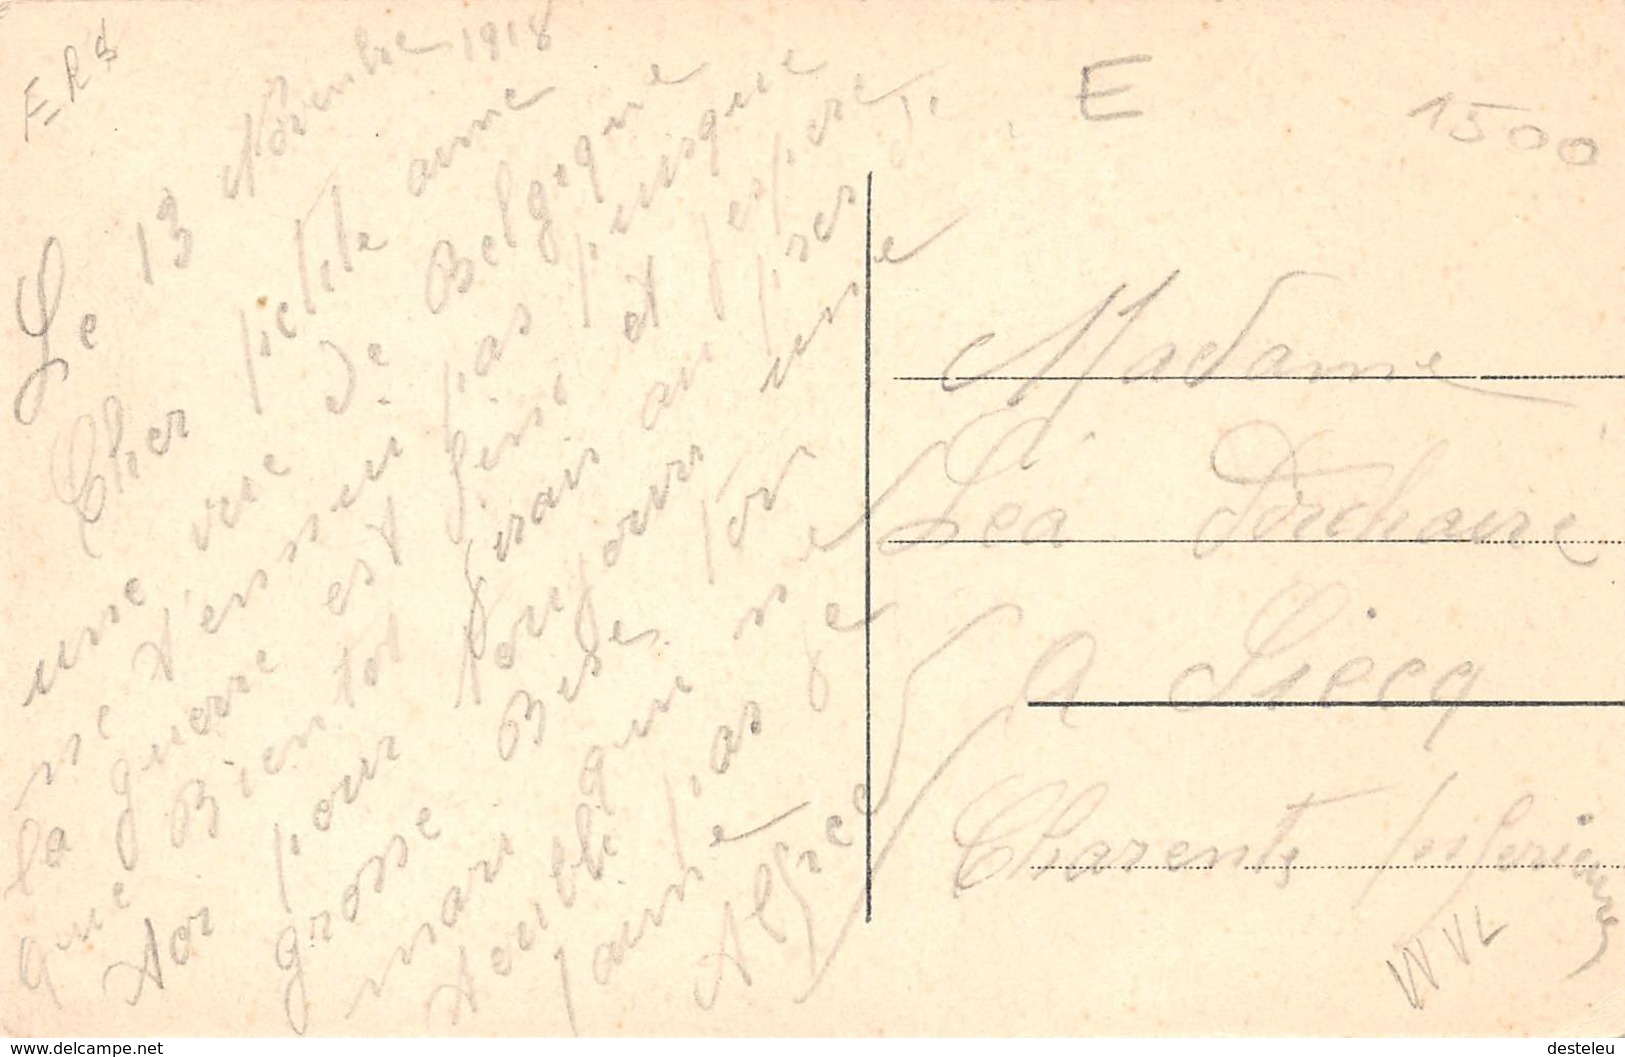 FRS
Le 13 Novembre 1918
Cher petite aime
une vue de Belgique
ne t'ensseu pas puisque
la guerre est fini et j'espere
que Bientot j'irais au pres de
toi pour toujours une
grosse Bise ton
mari qui ne
t'oubli pas je
t'aime
Alfred
E
1500
Madame
Léa Fouchaire
A Siecq
Charente Inferieure
WVL
www.delcampe.net
desteleu